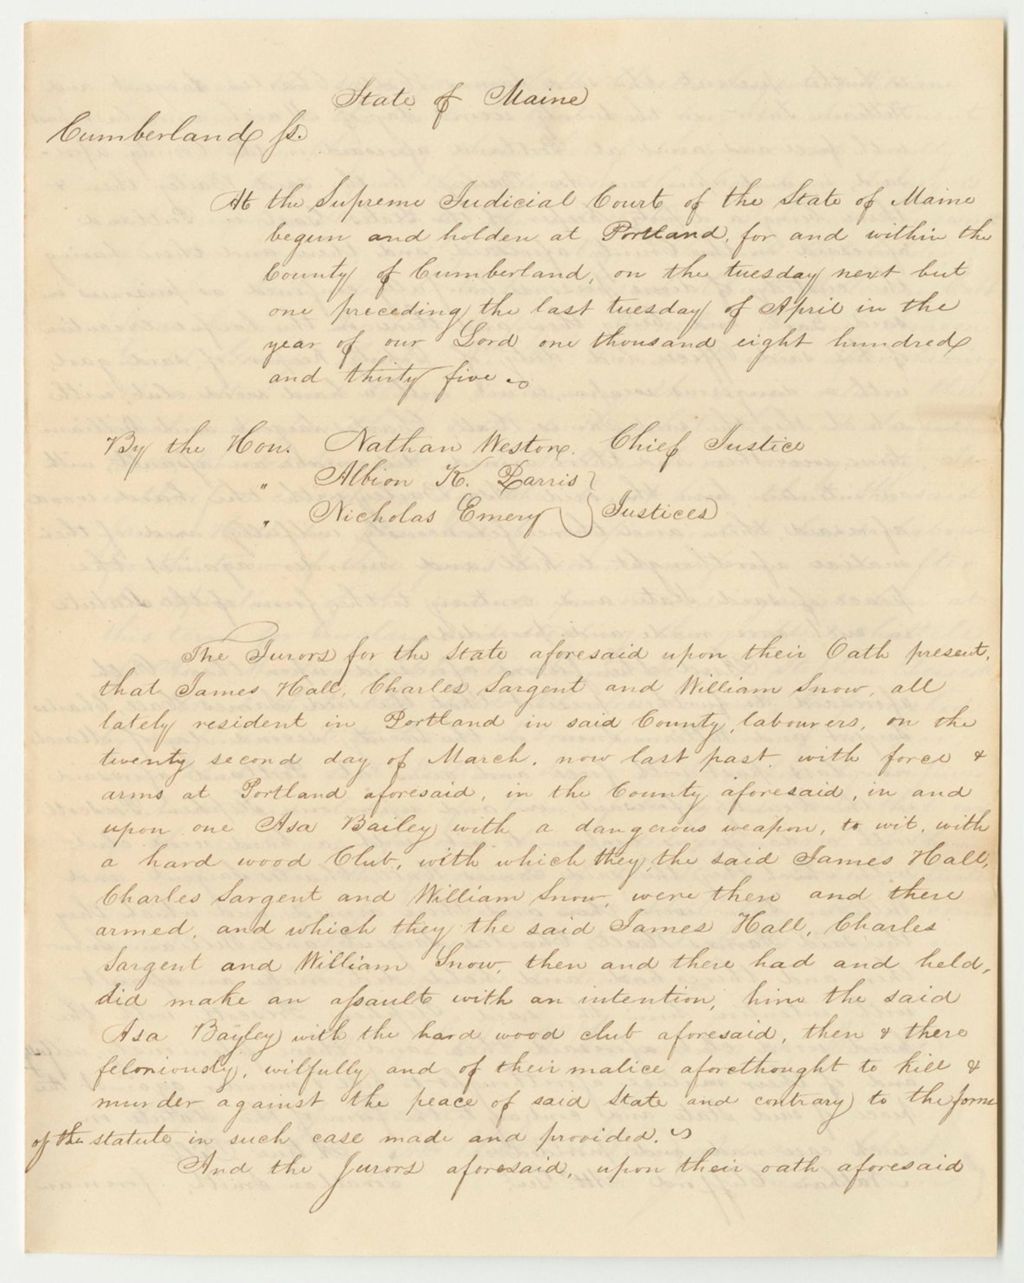 State of Maine
Cumberland ss.
At the Supreme Judicial Court of the State of Maine
begun and holden at Portland, for and within the
County of Cumberland, on the tuesday next but
one preceding the last tuesday of April in the
year of our Lord one thousand eight hundred
and thirty five
By the Hon. Nathan Weston. Chief Justice
" Albion K. Parris }
" Nicholas Emery } Justices
The Jurors for the State aforesaid upon their Oath present,
that James Hall, Charles Sargent and William Snow, all
lately resident in Portland in said County, labourers, on the
twenty second day of March, now last past, with force &
arms at Portland aforesaid, in the County aforesaid, in and
upon one Asa Bailey with a dangerous weapon, to wit, with
a hard wood Club, with which they, the said James Hall,
Charles Sargent and William Snow, were then and there
armed, and which they the said James Hall, Charles
Sargent and William Snow, then and there had and held,
did make an assault with an intention, him the said
Asa Bayley with the hard wood club aforesaid, then & there
feloniously, wilfully and of their malice aforethought to kill &
murder against the peace of said State and contrary to the form
of the statute in such case made and provided.
And the Jurors aforesaid, upon their oath aforesaid